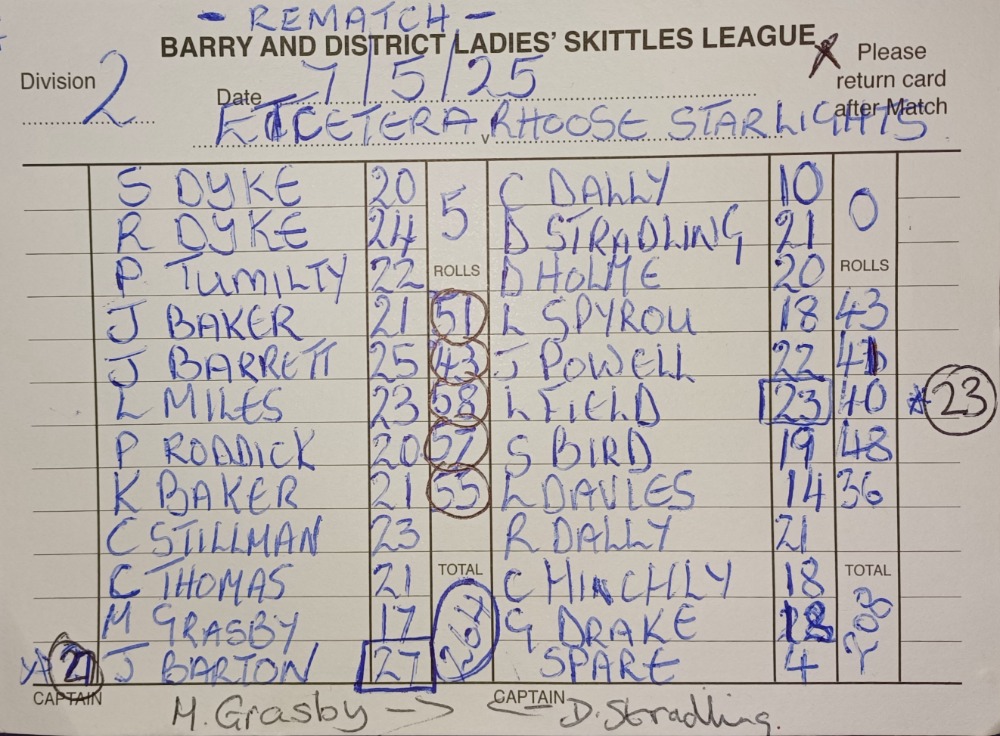 - REMATCH -
BARRY AND DISTRICT LADIES' SKITTLES LEAGUE
Please return card after Match
Division 2
Date 7/5/25
ETCETERA v RHOOSE STARLIGHTS
S DYKE 20 5 C DALLY 10 0
R DYKE 24 D STRADLING 21
P TUMILTY 22 ROLLS D HOLME 20 ROLLS
J BAKER 21 51 L SPYROU 18 43
J BARRETT 25 43 J POWELL 22 41
L MILES 23 58 L FIELD 23 40 23
P RODDICK 20 57 S BIRD 19 48
K BAKER 21 55 L DAVIES 14 36
C STILLMAN 23 R DALLY 21
C THOMAS 21 TOTAL C HINCHLY 18 TOTAL
M GRASBY 17 264 G DRAKE 18 208
27 J BARTON 27 SPARE 4
CAPTAIN M. Grasby CAPTAIN D. Stradling.